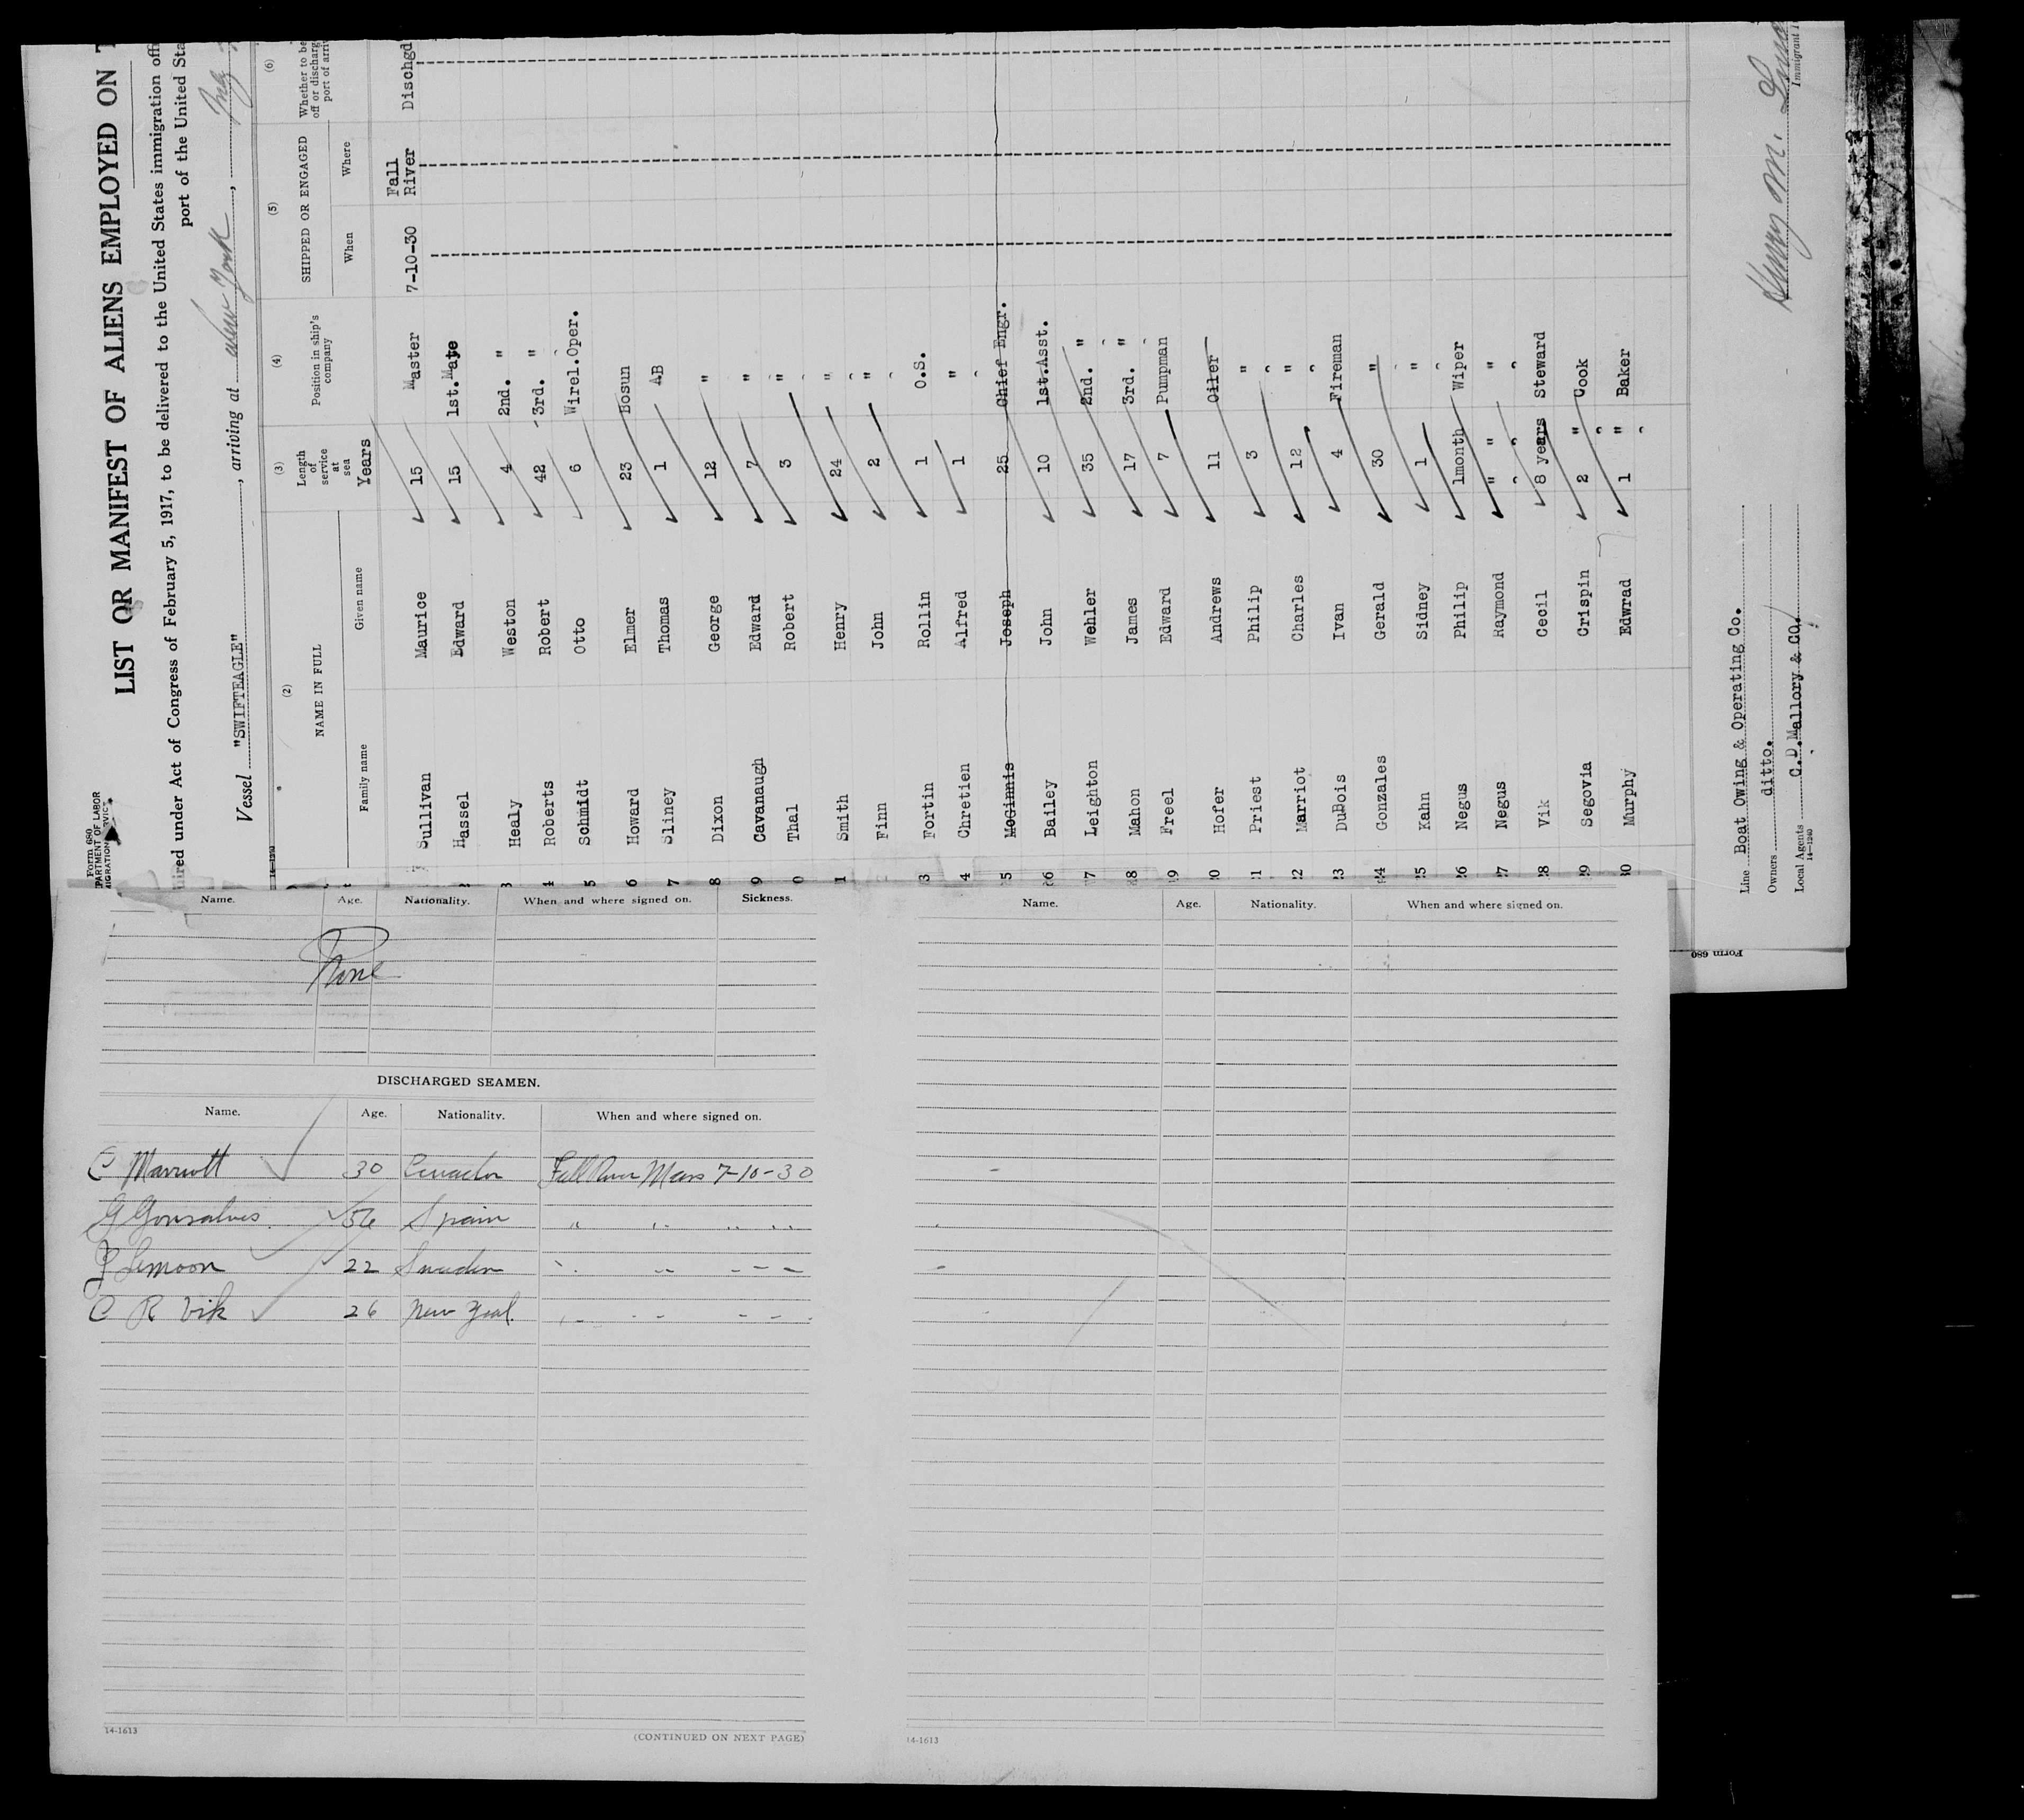 Form 680
LIST OR MANIFEST OF ALIENS EMPLOYED ON
uired under Act of Congress of February 5, 1917, to be delivered to the United States immigration
port of the United
Vessel "SWIFTEAGLE", arriving at New York,
(2) (3) (4) (5) (6)
NAME IN FULL Length of service at sea Position in ship's company SHIPPED OR ENGAGED Whether to be off or discharg port of
Family name Given name Years When Where
Sullivan Maurice 15 Master 7-10-30 Fall River Dischgd
Hassel Edward 15 1st.Mate
3 Healy Weston 4 2nd. "
4 Roberts Robert 42 3rd. "
5 Schmidt Otto 6 Wirel.Oper.
6 Howard Elmer 23 Bosun
7 Sliney Thomas 1 AB
8 Dixon George 12 "
9 Cavanaugh Edward 7 "
0 Thal Robert 3 "
1 Smith Henry 24 "
Finn John 2 "
3 Fortin Rollin 1 O.S.
4 Chretien Alfred 1 "
5 McGinnis Joseph 25 Chief Engr.
26 Bailey John 10 1st.Asst.
7 Leighton Wehler 35 2nd. "
8 Mahon James 17 3rd. "
9 Freel Edward 7 Pumpman
0 Hofer Andrews 11 Oiler
1 Priest Philip 3 "
2 Marriot Charles 12 "
3 DuBois Ivan 4 Fireman
24 Gonzales Gerald 30 "
25 Kahn Sidney 1 "
26 Negus Philip 1month Wiper
27 Negus Raymond " " "
28 Vik Cecil 8 years Steward
29 Segovia Crispin 2 " Cook
30 Murphy Edwrad 1 " Baker
Line Boat Owing & Operating Co.
Owners ditto.
Local Agents C.D.Mallory & CO.
14-1240
Henry M.
Immigrant
Form 680
Name. Age. Nationality. When and where signed on. Sickness.
None
DISCHARGED SEAMEN.
Name. Age. Nationality. When and where signed on.
C Marriott 30 Ecuador Fall River Mass 7-10-30
G Gonsalves 56 Spain " " " "
22 Sweden
C R Vik 26 New Zeal.
14-1613 (CONTINUED ON NEXT PAGE)
Name. Age. Nationality. When and where signed on.
14-1613